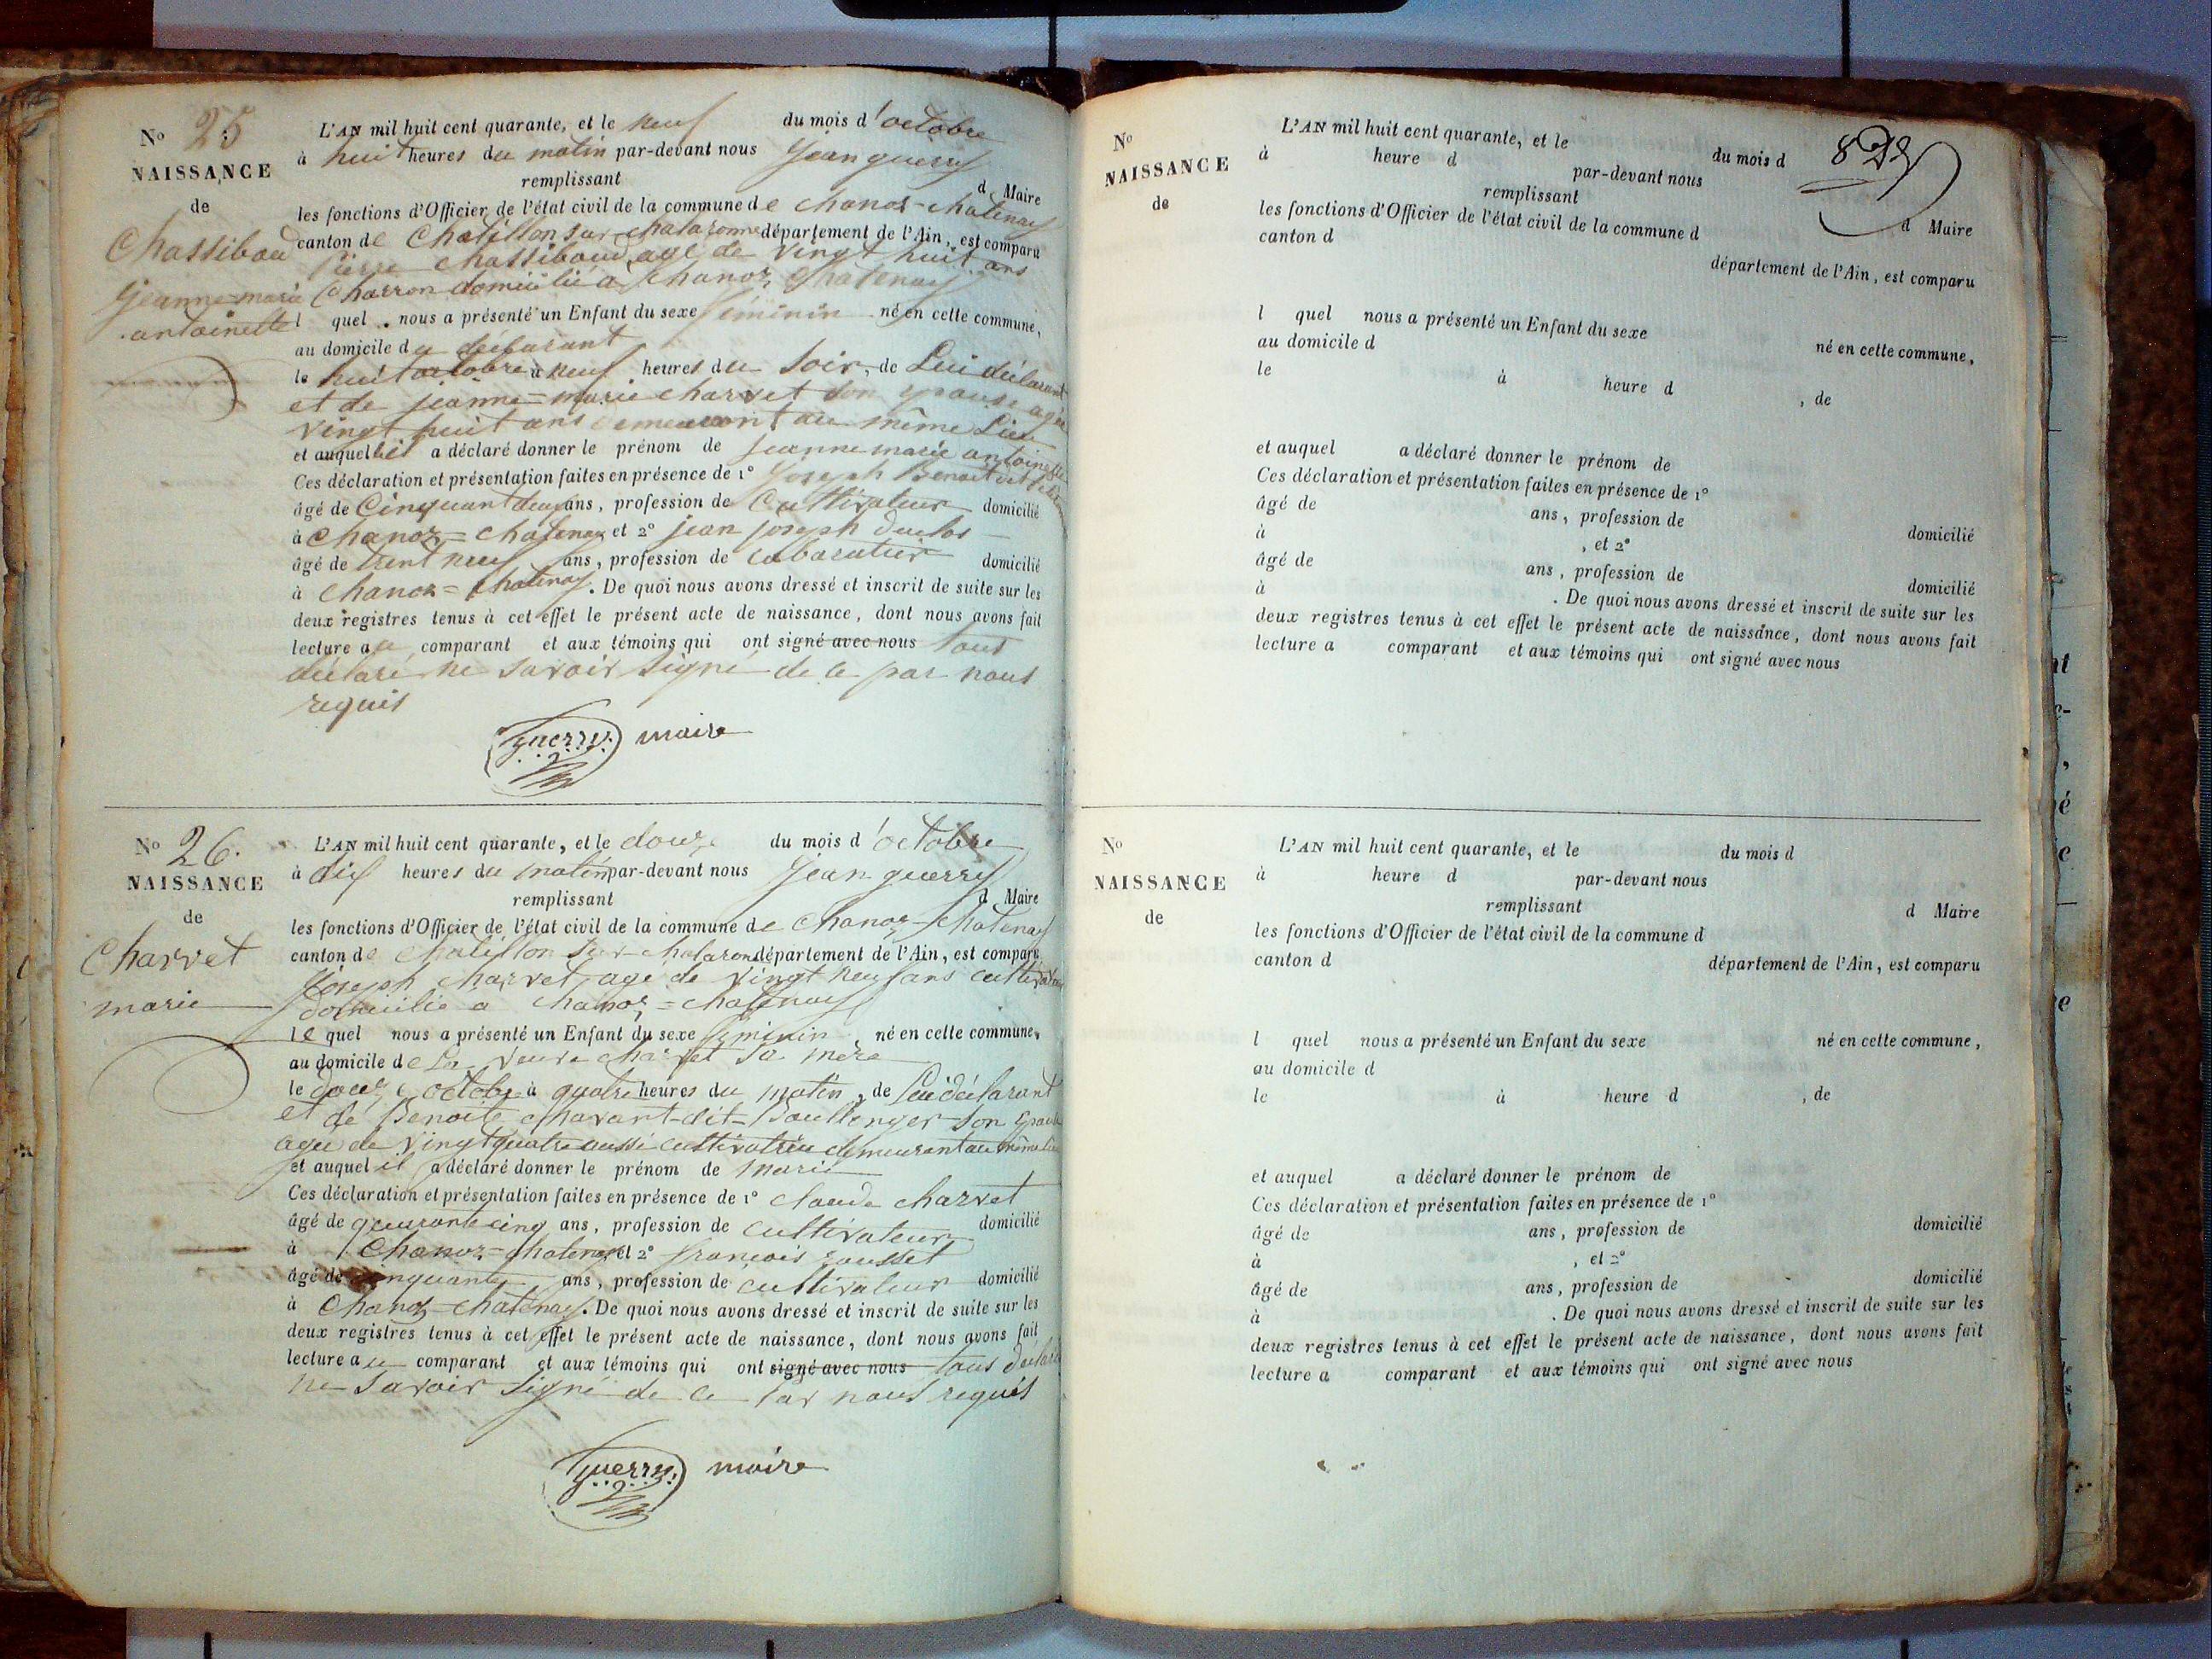 N° 25
NAISSANCE
de
Chassiboud
jeanne=marie
antoinette
L'AN mil huit cent quarante, et le neuf du mois d'octobre
à huit heures du matin par-devant nous jean guerry
remplissant d Maire
les fonctions d'Officier de l'état civil de la commune de chanoz-chatenay
canton de Chatillon sur chalaronne département de l'Ain, est comparu
Pierre chassiboud agé de vingt huit ans
Charron domicilié a chanoz chatenay
l quel nous a présenté un Enfant du sexe féminin né en cette commune,
au domicile du déclarant
le huit octobre à neuf heures du soir, de Lui déclarant
et de jeanne=marie charvet son epouse agée
vingt huit ans demeurant au même Lieu
et auquel il a déclaré donner le prénom de jeanne marie antoinette
Ces déclaration et présentation faites en présence de 1° joseph Benoit dit
âgé de Cinquant deux ans, profession de Cultivateur domicilié
à chanoz=chatenay et 2° jean joseph duclos
âgé de trent neuf ans, profession de cabaratier domicilié
à chanoz=chatenay. De quoi nous avons dressé et inscrit de suite sur les
deux registres tenus à cet effet le présent acte de naissance, dont nous avons fait
lecture au comparant et aux témoins qui ont signé avec nous tous
déclaré ne savoir signé de ce par nous
requis
guerry maire
N° 26.
NAISSANCE
de
Charvet
marie
L'AN mil huit cent quarante, et le douze du mois d'octobre
à dix heures du matin par-devant nous jean guerry
remplissant d Maire
les fonctions d'Officier de l'état civil de la commune de chanoz-chatenay
canton de chatillon sur chalaron département de l'Ain, est comparu
joseph charvet agé de vingt neuf ans cultivateur
domicilié a chanoz=chatenay
le quel nous a présenté un Enfant du sexe féminin, né en cette commune,
au domicile de La veuve charvet sa mère
le douze octobre à quatre heures du matin, de Lui déclarant
et de Benoite chavant-dit-Boullonger son epouse
agée de vingt quatre aussi cultivatrice demeurant au même lieu
et auquel il a déclaré donner le prénom de marie
Ces déclaration et présentation faites en présence de 1° claude charvet
âgé de quaronte cinq ans, profession de cultivateur domicilié
à Chanoz=chatenay et 2° françois rousset
âgé de cinquante ans, profession de cultivateur domicilié
à Chanoz-chatenay. De quoi nous avons dressé et inscrit de suite sur les
deux registres tenus à cet effet le présent acte de naissance, dont nous avons fait
lecture au comparant et aux témoins qui ont signé avec nous tous déclaré
ne savoir signé de ce par nous requis
guerry maire
N°
NAISSANCE
de
L'AN mil huit cent quarante, et le du mois d
à heure d par-devant nous
remplissant d Maire
les fonctions d'Officier de l'état civil de la commune d
canton d département de l'Ain, est comparu
l quel nous a présenté un Enfant du sexe né en cette commune,
au domicile d
le à heure d , de
et auquel a déclaré donner le prénom de
Ces déclaration et présentation faites en présence de 1°
âgé de ans, profession de domicilié
à , et 2°
âgé de ans, profession de domicilié
à . De quoi nous avons dressé et inscrit de suite sur les
deux registres tenus à cet effet le présent acte de naissance, dont nous avons fait
lecture a comparant et aux témoins qui ont signé avec nous
N°
NAISSANCE
de
L'AN mil huit cent quarante, et le du mois d
à heure d par-devant nous
remplissant d Maire
les fonctions d'Officier de l'état civil de la commune d
canton d département de l'Ain, est comparu
l quel nous a présenté un Enfant du sexe né en cette commune,
au domicile d
le à heure d , de
et auquel a déclaré donner le prénom de
Ces déclaration et présentation faites en présence de 1°
âgé de ans, profession de domicilié
à , et 2°
âgé de ans, profession de domicilié
à . De quoi nous avons dressé et inscrit de suite sur les
deux registres tenus à cet effet le présent acte de naissance, dont nous avons fait
lecture a comparant et aux témoins qui ont signé avec nous